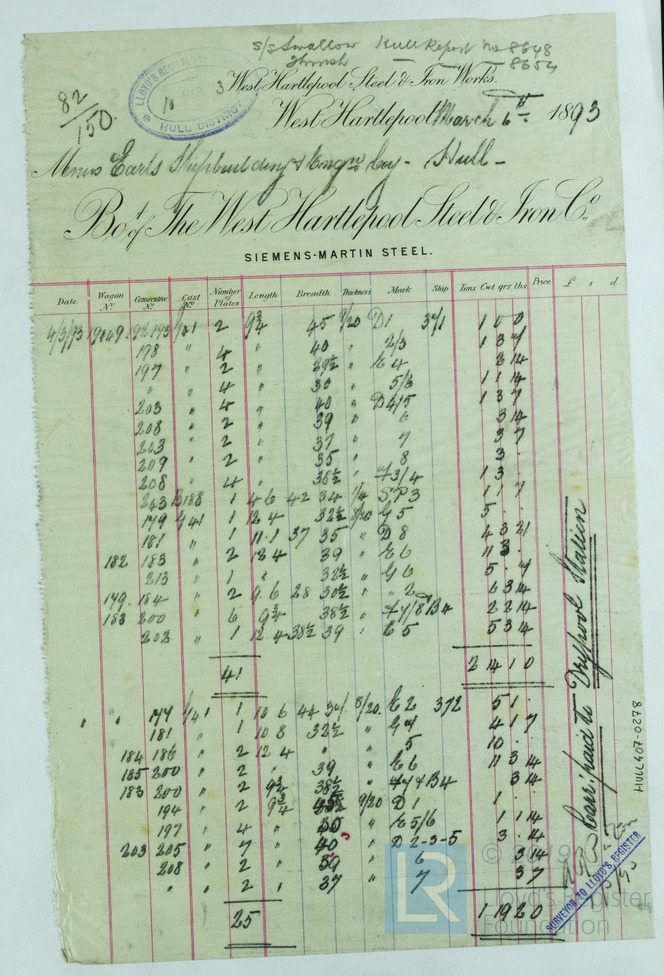 S/S Swallow Hull Report No 8648
Thrush — 8654
LLOYD'S REGISTER
HULL DISTRICT
82/150.
West Hartlepool Steel & Iron Works.
West Hartlepool March 6th 1893
Messrs Earls Shipbuilding & Engn Coy - Hull -
Bot. of The West Hartlepool Steel & Iron Co.
SIEMENS-MARTIN STEEL.
Date Wagon No. Consecutive No. Cast No. Number of Plates Length Breadth Thickness Mark Ship Tons Cwt qrs lbs Price £ s d
4/3/93 19049 192 193 2 9¾ 45 9/20 D1 371 1 0 0
198 " 4 " 40 " 2/3 1 3 7
197 " 2 " 29½ " E4 2 14
" " 4 " 30 " 5/3 1 1 14
203 " 4 " 40 " D4/5 1 3 7
208 " 2 " 39 " 6 3 14
203 " 2 " 37 " 7 3 7
209 " 2 " 35 " 8 3 .
208 " 4 " 38½ " 3/4 1 3 .
243 B188 1 4 6 42 34 1/4 SP3 1 1 7
179 1 12 4 32½ 8/20 G5 5 . .
181 " 1 11.1 37 35 " D8 4 3 21
182 183 " 2 12 4 39 " E6 11 3 .
213 " 1 " 32½ " G6 5 . 7
179. 184 " 2 9 6 28 30½ " " 2 6 3 14
183 200 " 6 9¾ 38½ " F7/8 B4 2 2 14
202 " 1 12 4 38½ 39 " E5 5 3 14
41 2 4 1 0
" " 177 1 10 6 44 34½ 8/20 E2 372 5 1 .
181 " 1 10 8 32½ " G4 4 1 7
" " 2 12 4 " " 5 10 . .
184 186 " 2 " 39 " E6 11 3 14
185 200 " 2 " 38½ " F7 & B4 3 14
183 200 " 2 9¾ 45 9/20 D1 1 . .
194 " 2
197 " 4 " 30 " E5/6 1 1 14
203 205 " 7 " 40 " D2-3-5 3 . 14
208 " 2 " 39 " 6 3 14
" " 2 " 37 " 7 3 7
25 1 19 2 0
Carr: paid to Drypool Station
HULL407-0278
SURVEYOR TO LLOYD'S REGISTER
LR
© 2019
Lloyd's Register
Foundation